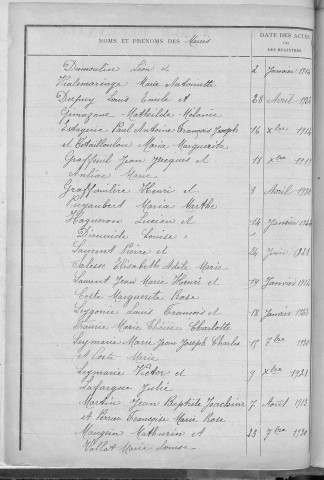 NOMS ET PRÉNOMS DES Mariés
DATE DES ACTES
OU
DES REGISTRES
Dumoulin Léon et 2 Janvier 1914
Vialemaringe Marie Antoinette
Dupuy Louis Emile et 28 Avril 1924
Mathilde Mélanie
Estagerie Paul Antoine François Joseph 16 Xbre 1914
et Maria Marguerite
Graffeuil Jean Jacques et 18 Xbre
Marie
Henri et 9 Avril 1920
Puyaubert Maria Marthe
Lucien et 14 Janvier
Louise
Laurent Pierre et 24 Juin 1921
Salesse Elisabeth Adèle Marie
Laurent Jean Marie Henri et 19 Janvier 1914
Coste Marguerite Rose
Louis François et 18 Janvier
Marie Thérèse Charlotte
Leymarie Marie Jean Joseph Charles 15 7bre 1920
et Marie
Leymarie Victor et 9 Xbre 1921
Lafargue Julie
Martin Jean Baptiste Joachim 7 Août 1913
et Perrier Françoise Marie Rose
Maugein Mathurin et 23 7bre 1920
Marie Louise